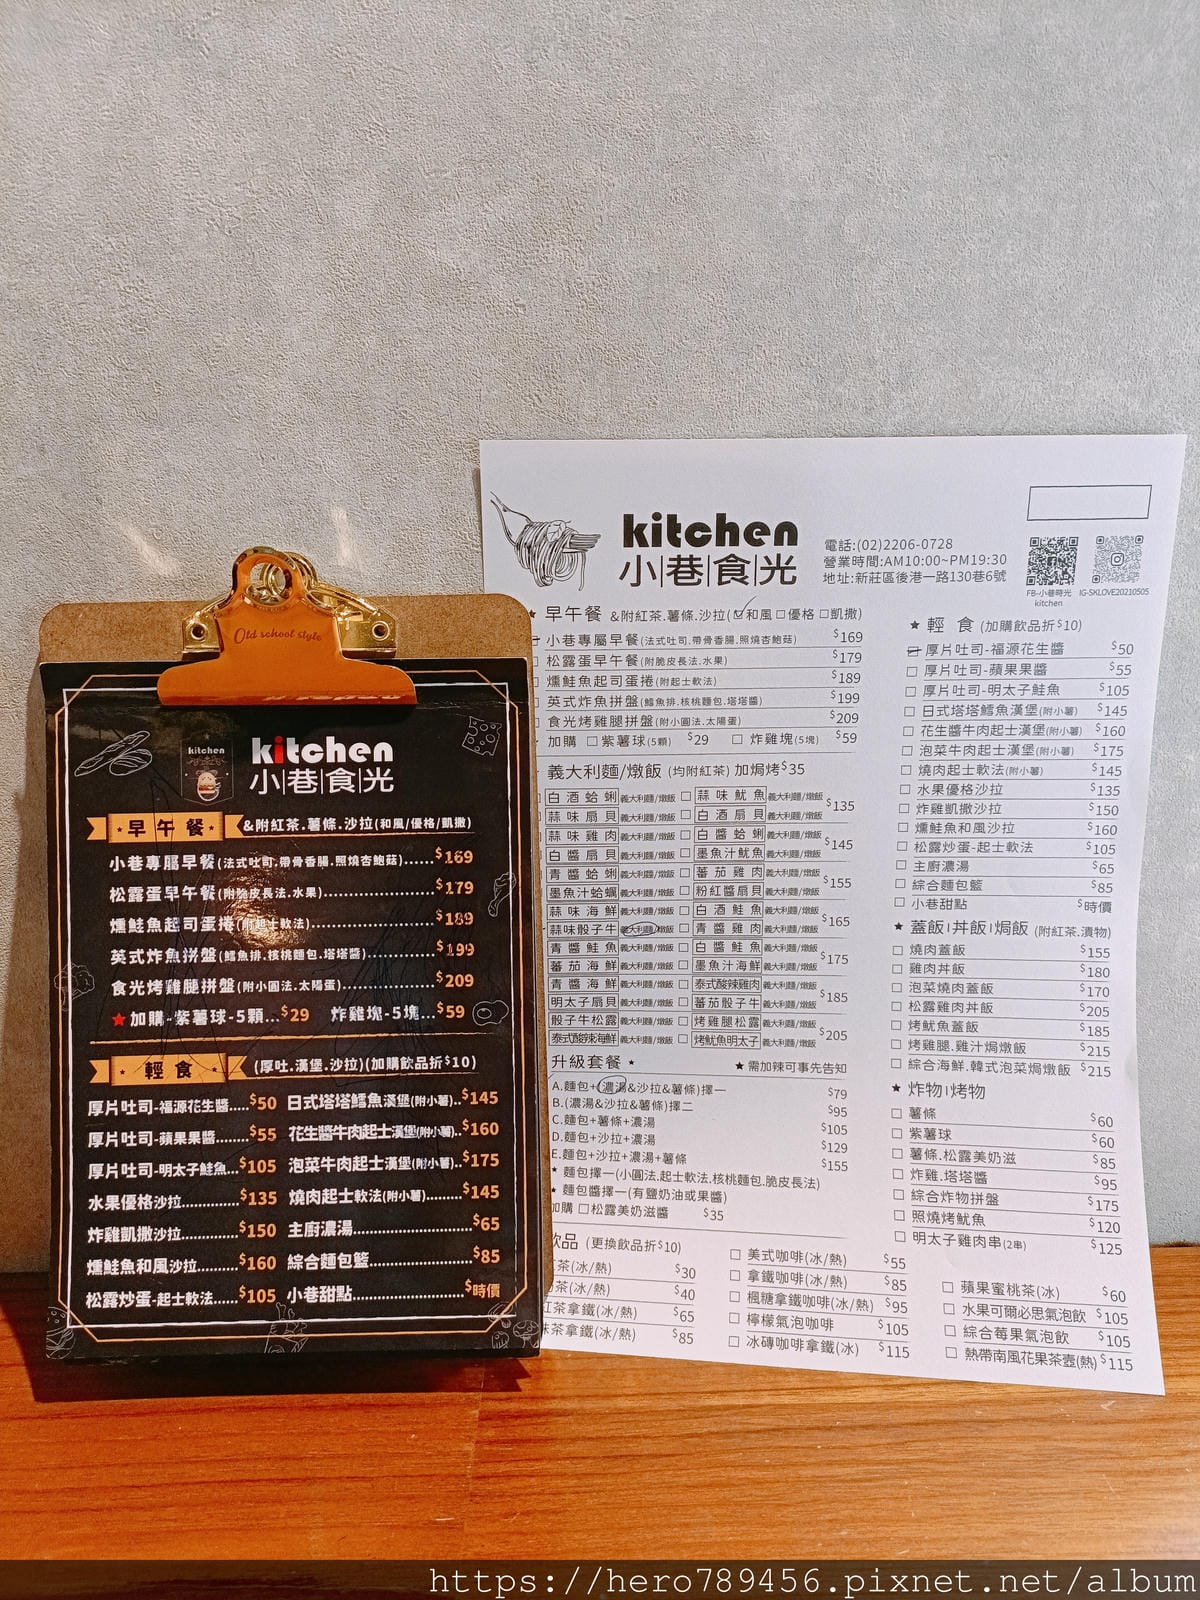 Old school style
kitchen
kitchen
小巷食光
早午餐 &附紅茶.薯條.沙拉(和風/優格/凱撒)
小巷專屬早餐(法式吐司.帶骨香腸.照燒杏鮑菇)......$169
松露蛋早午餐(附脆皮長法.水果)......$179
燻鮭魚起司蛋捲(附起士軟法)......$189
英式炸魚拼盤(鱈魚排.核桃麵包.塔塔醬)......$199
食光烤雞腿拼盤(附小圓法.太陽蛋)......$209
★加購-紫薯球-5顆...$29 炸雞塊-5塊...$59
輕食 (厚吐.漢堡.沙拉)(加購飲品折$10)
厚片吐司-福源花生醬.....$50 日式塔塔鱈魚漢堡(附小薯)..$145
厚片吐司-蘋果果醬.......$55 花生醬牛肉起士漢堡(附小薯)..$160
厚片吐司-明太子鮭魚...$105 泡菜牛肉起士漢堡(附小薯)..$175
水果優格沙拉......$135 燒肉起士軟法(附小薯)......$145
炸雞凱撒沙拉......$150 主廚濃湯......$65
燻鮭魚和風沙拉......$160 綜合麵包籃......$85
松露炒蛋-起士軟法......$105 小巷甜點......$時價
kitchen
小巷食光
電話:(02)2206-0728
營業時間:AM10:00~PM19:30
地址:新莊區後港一路130巷6號
FB-小巷時光 kitchen
IG-SKLOVE20210505
★ 早午餐 &附紅茶.薯條.沙拉(☑和風 □優格 □凱撒)
小巷專屬早餐(法式吐司.帶骨香腸.照燒杏鮑菇) $169
松露蛋早午餐(附脆皮長法.水果) $179
燻鮭魚起司蛋捲(附起士軟法) $189
英式炸魚拼盤(鱈魚排.核桃麵包.塔塔醬) $199
食光烤雞腿拼盤(附小圓法.太陽蛋) $209
加購 □紫薯球(5顆) $29 □ 炸雞塊(5塊) $59
義大利麵/燉飯 (均附紅茶) 加焗烤$35
白酒蛤蜊 義大利麵/燉飯 □ 蒜味魷魚 義大利麵/燉飯 $135
蒜味扇貝 義大利麵/燉飯 □ 白酒扇貝 義大利麵/燉飯
蒜味雞肉 義大利麵/燉飯 □ 白醬蛤蜊 義大利麵/燉飯 $145
白醬扇貝 義大利麵/燉飯 □ 墨魚汁魷魚 義大利麵/燉飯
青醬蛤蜊 義大利麵/燉飯 □ 蕃茄雞肉 義大利麵/燉飯 $155
墨魚汁蛤蠣 義大利麵/燉飯 □ 粉紅醬扇貝 義大利麵/燉飯
蒜味海鮮 義大利麵/燉飯 □ 白酒鮭魚 義大利麵/燉飯 $165
蒜味骰子牛 義大利麵/燉飯 □ 青醬雞肉 義大利麵/燉飯
青醬鮭魚 義大利麵/燉飯 □ 白醬鮭魚 義大利麵/燉飯 $175
蕃茄海鮮 義大利麵/燉飯 □ 墨魚汁海鮮 義大利麵/燉飯
青醬海鮮 義大利麵/燉飯 □ 泰式酸辣雞肉 義大利麵/燉飯 $185
明太子扇貝 義大利麵/燉飯 □ 蕃茄骰子牛 義大利麵/燉飯
骰子牛松露 義大利麵/燉飯 □ 烤雞腿松露 義大利麵/燉飯 $205
泰式酸辣海鮮 義大利麵/燉飯 □ 烤魷魚明太子 義大利麵/燉飯
升級套餐 ★ ★ 需加辣可事先告知
A.麵包+(濃湯&沙拉&薯條)擇一 $79
B.(濃湯&沙拉&薯條)擇二 $95
C.麵包+薯條+濃湯 $105
D.麵包+沙拉+濃湯 $129
E.麵包+沙拉+濃湯+薯條 $155
★ 麵包擇一(小圓法.起士軟法.核桃麵包.脆皮長法)
★ 麵包醬擇一(有鹽奶油或果醬)
加購 □松露美奶滋醬 $35
飲品 (更換飲品折$10)
茶(冰/熱) $30
茶(冰/熱) $40
紅茶拿鐵(冰/熱) $65
抹茶拿鐵(冰/熱) $85
□ 美式咖啡(冰/熱) $55
□ 拿鐵咖啡(冰/熱) $85
□ 楓糖拿鐵咖啡(冰/熱) $95
□ 檸檬氣泡咖啡 $105
□ 冰磚咖啡拿鐵(冰) $115
★ 輕食 (加購飲品折$10)
厚片吐司-福源花生醬 $50
□ 厚片吐司-蘋果果醬 $55
□ 厚片吐司-明太子鮭魚 $105
□ 日式塔塔鱈魚漢堡(附小薯) $145
□ 花生醬牛肉起士漢堡(附小薯) $160
□ 泡菜牛肉起士漢堡(附小薯) $175
□ 燒肉起士軟法(附小薯) $145
□ 水果優格沙拉 $135
□ 炸雞凱撒沙拉 $150
□ 燻鮭魚和風沙拉 $160
□ 松露炒蛋-起士軟法 $105
□ 主廚濃湯 $65
□ 綜合麵包籃 $85
□ 小巷甜點 $時價
★ 蓋飯|丼飯|焗飯 (附紅茶.漬物)
□ 燒肉蓋飯 $155
□ 雞肉丼飯 $180
□ 泡菜燒肉蓋飯 $170
□ 松露雞肉丼飯 $205
□ 烤魷魚蓋飯 $185
□ 烤雞腿.雞汁焗燉飯 $215
□ 綜合海鮮.韓式泡菜焗燉飯 $215
★ 炸物|烤物
□ 薯條 $60
□ 紫薯球 $60
□ 薯條.松露美奶滋 $85
□ 炸雞.塔塔醬 $95
□ 綜合炸物拼盤 $175
□ 照燒烤魷魚 $120
□ 明太子雞肉串(2串) $125
□ 蘋果蜜桃茶(冰) $60
□ 水果可爾必思氣泡飲 $105
□ 綜合莓果氣泡飲 $105
□ 熱帶南風花果茶壺(熱) $115
https://hero789456.pixnet.net/album